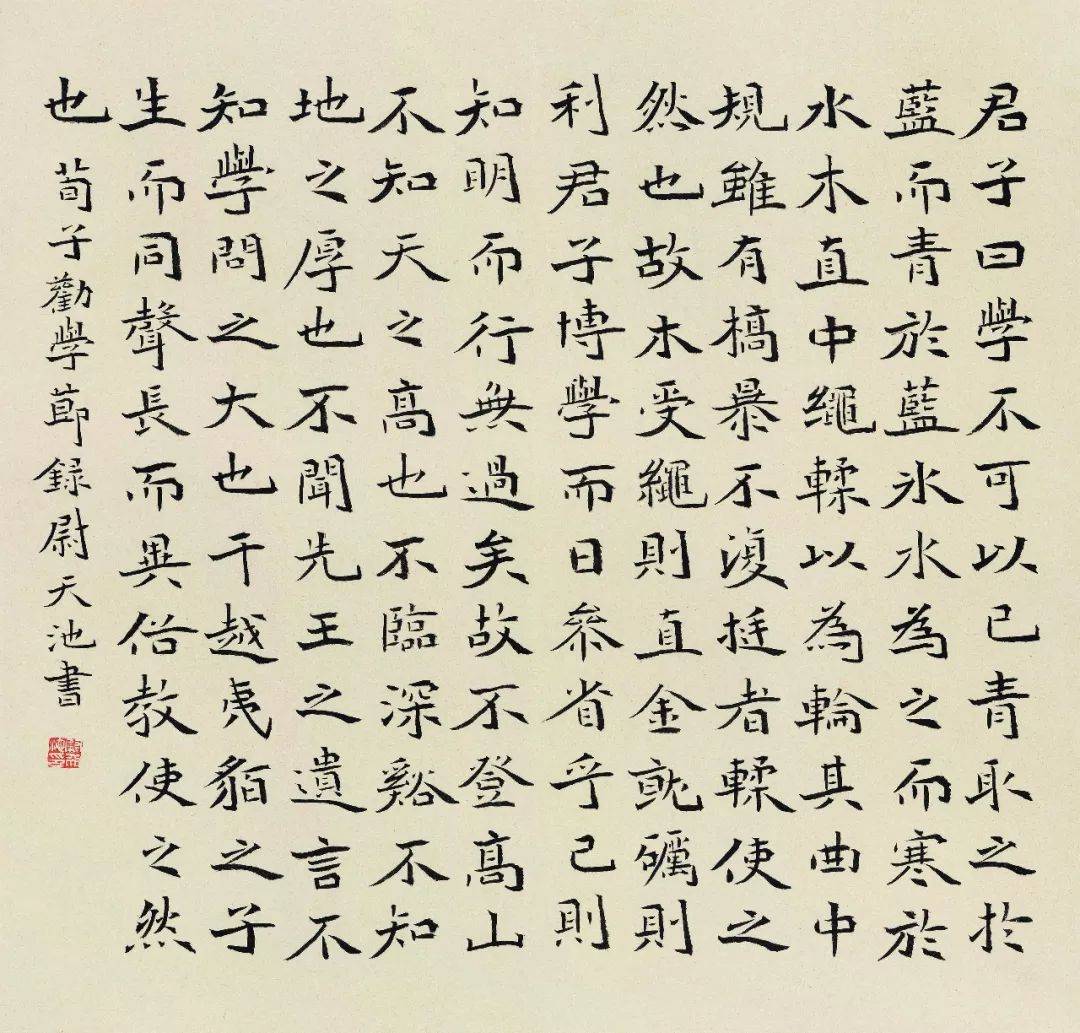 君子曰學不可以已青取之於
藍而青於藍冰水為之而寒於
水木直中繩輮以為輪其曲中
規雖有槁暴不復挺者輮使之
然也故木受繩則直金就礪則
利君子博學而日參省乎己則
知明而行無過矣故不登高山
不知天之高也不臨深谿不知
地之厚也不聞先王之遺言不
知學問之大也干越夷貉之子
生而同聲長而異俗教使之然
也
荀子勸學節錄尉天池書